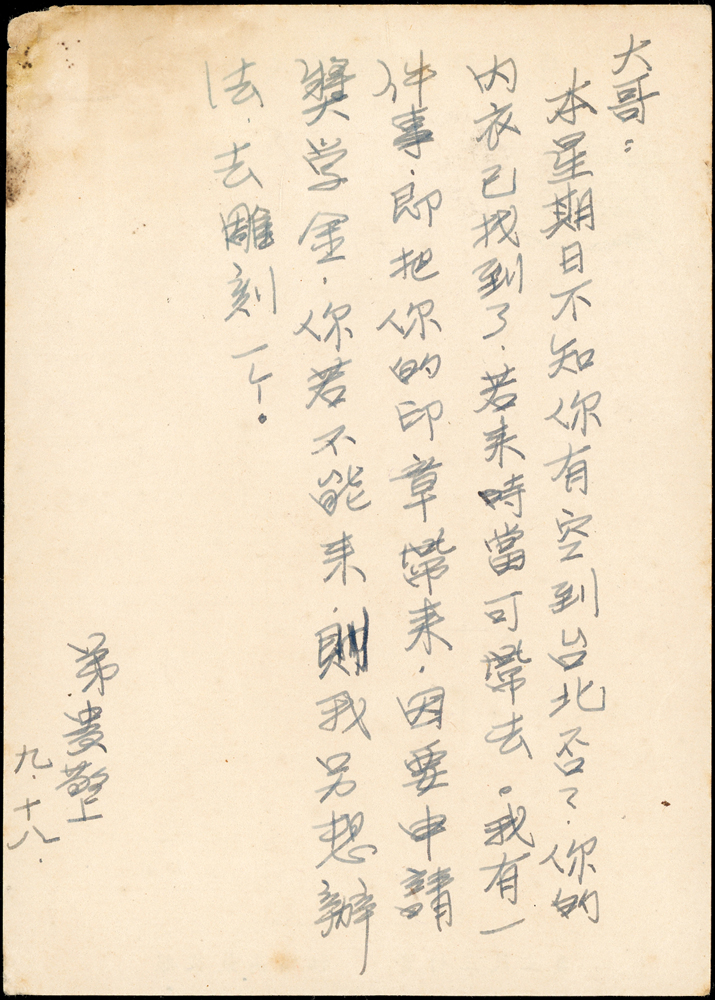 大哥：
本星期日不知你有空到台北否？你的
内衣已找到了，若来時當可帶去。我有一
件事，即把你的印章帶来，因要申請
獎学金，你若不能来，則我另想辦
法，去雕刻一个。
弟 貴 敬上
九.十八.